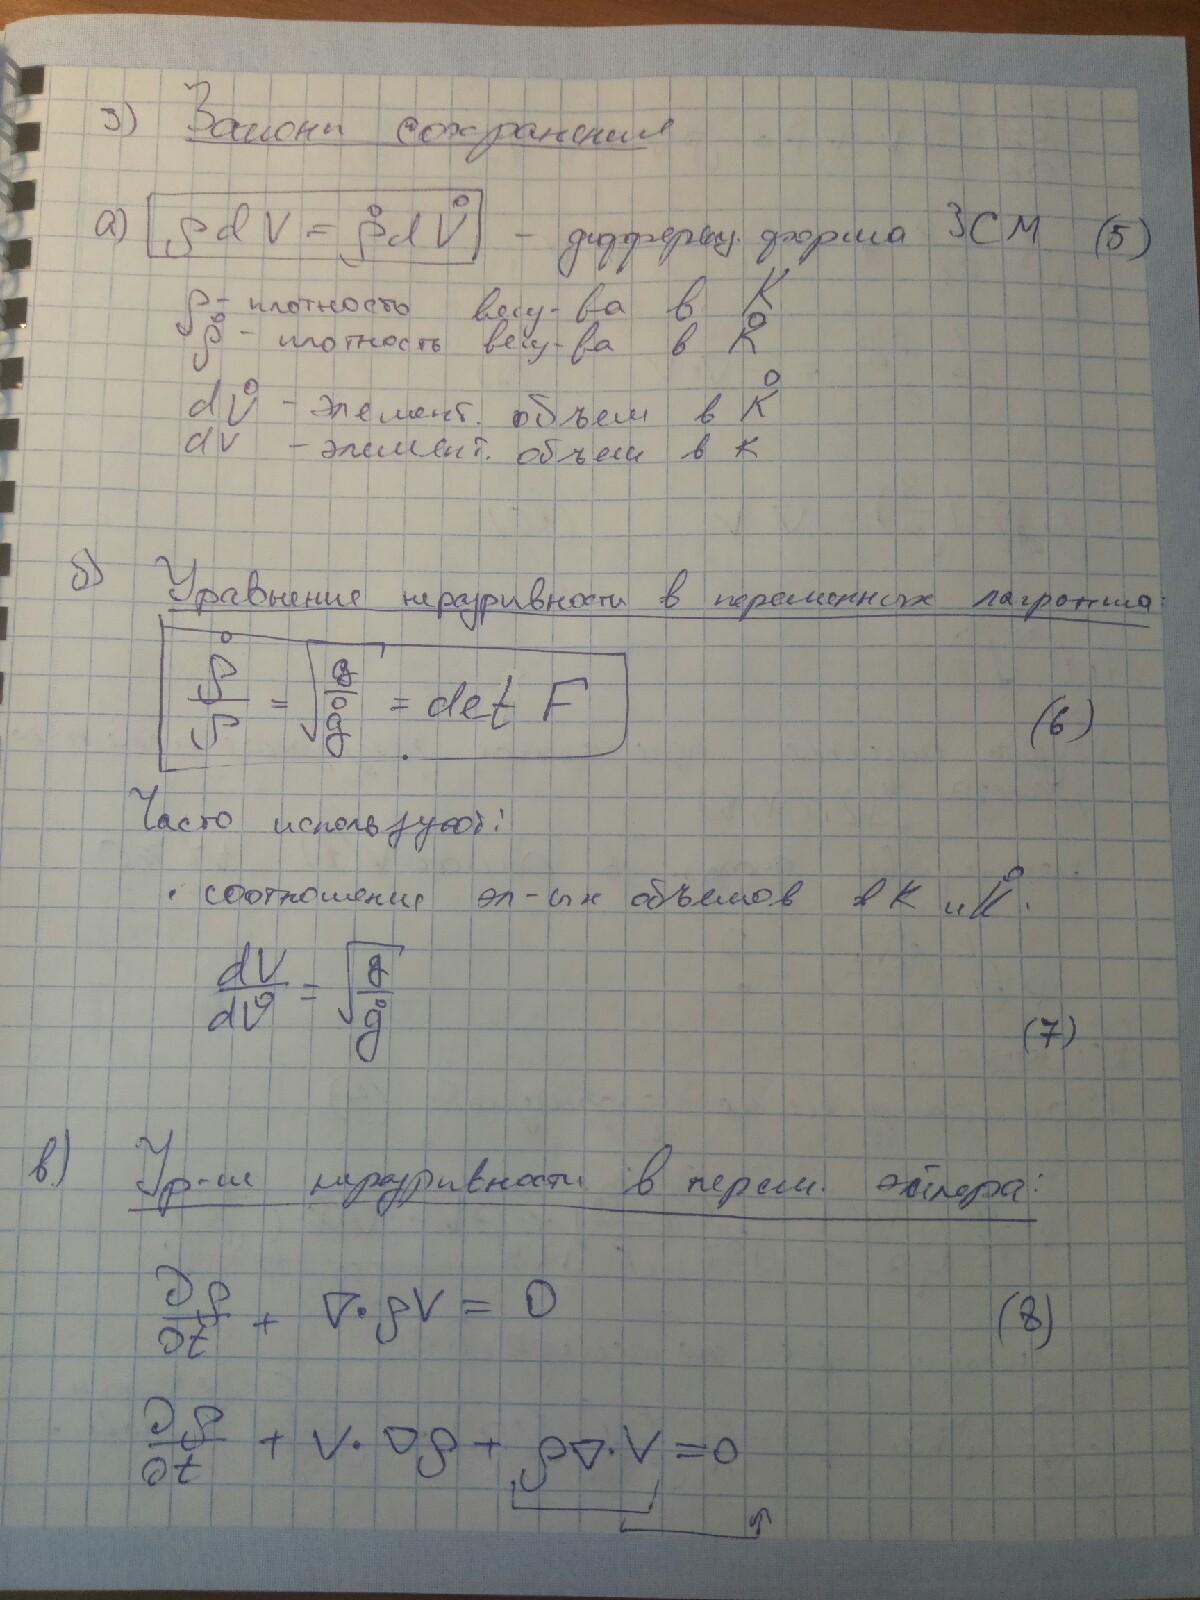 3) Законы сохранения
а) ρdV = ρ̊dV̊ - дифференц. форма ЗСМ (5)
ρ - плотность вещ-ва в K
ρ̊ - плотность вещ-ва в K̊
dV̊ - элемент. объем в K̊
dV - элемент. объем в K
б) Уравнение неразрывности в переменных лагранжа:
ρ̊/ρ = √(g/g̊) = det F (6)
Часто используют:
· соотношение эл-ых объемов в K и K̊.
dV/dV̊ = √(g/g̊) (7)
в) Ур-ие неразрывности в перем. эйлера:
∂ρ/∂t + ∇·ρV = 0 (8)
∂ρ/∂t + V·∇ρ + ρ∇·V = 0